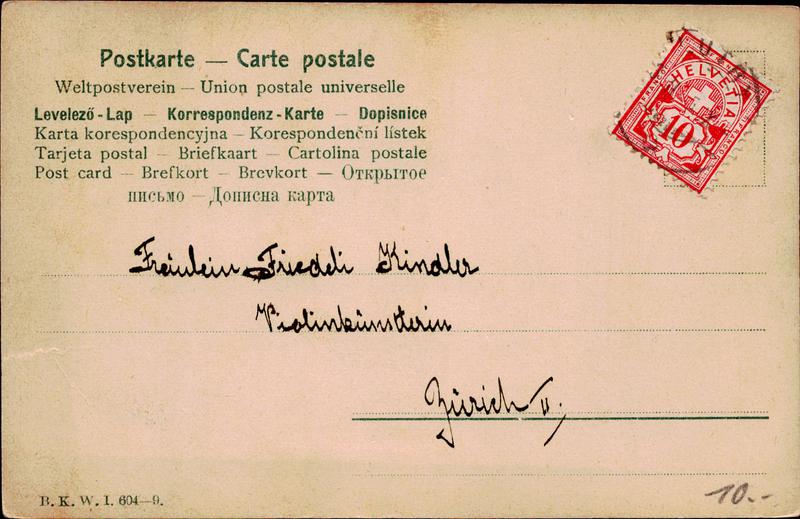 Postkarte — Carte postale
Weltpostverein — Union postale universelle
Levelező-Lap — Korrespondenz-Karte — Dopisnice
Karta korespondencyjna — Korespondenční lístek
Tarjeta postal — Briefkaart — Cartolina postale
Post card — Brefkort — Brevkort — Открытое
письмо — Дописна карта
HELVETIA
FRANCO
FRANCO
10
Fräulein Friedeli Kindler
Violinkünstlerin
Zürich II.
B. K. W. I. 604—9.
10.-